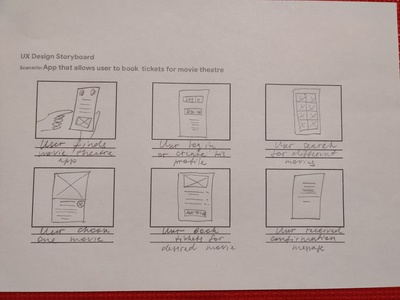 UX Design Storyboard
Scenario: App that allows user to book tickets for movie theatre
User finds
movie theatre
app
User log in
or create his
profile
User search
for different
movies
User choose
one movie
User book
tickets for
desired movie
User received
confirmation
message